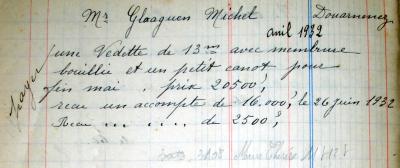 Mr Gloaguen Michel Douarnenez
avril 1932
une Vedette de 13m avec membrure
bouillie et un petit canot pour
fin mai . prix 20500f
payer
recu un accompte de 16.000f le 26 juin 1932
Recu ... ... . de 2500f